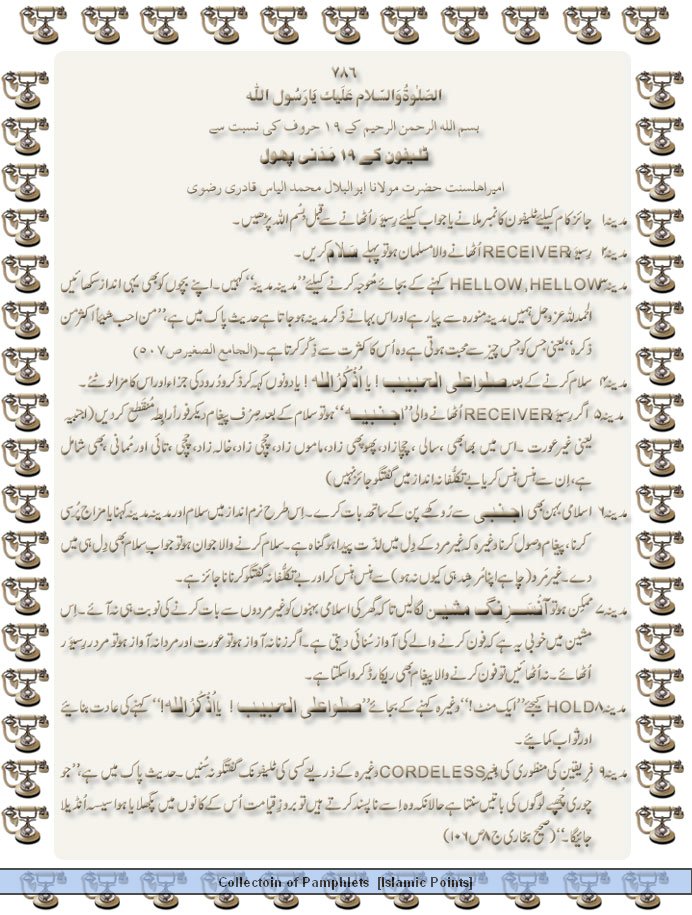 ٧٨٦
الصّلوٰةُ وَالسّلام عَلَیك یَارَسُول اللّٰه
بسم الله الرحمن الرحیم کے ۱۹ حروف کی نسبت سے
ٹلیفون کے ۱۹ مَدَنی پھول
امیراھلسنت حضرت مولانا ابوالبلال محمد الیاس قادری رضوی
مدینہ۱ جائز کام کیلئے ٹلیفون کا نمبر ملانے یا جواب کیلئے رِسیوَر اُٹھانے سے قَبل بِسْمِ اللہ پڑھیں۔
مدینہ۲ رِسیوَر RECEIVER اُٹھانے والا مسلمان ہو تو پہلے سَلام کریں۔
مدینہ۳ HELLOW, HELLOW کہنے کے بجائے مُتَوَجِّہ کرنے کیلئے ”مدینہ مدینہ“ کہیں۔ اپنے بچوں کو بھی یہی انداز سکھائیں
الحمدللہ عزوجل ہمیں مدینہ منورہ سے پیار ہے اور اس بہانے ذکرِ مدینہ ہو جاتا ہے حدیث پاک میں ہے، ”من احب شیئاً اکثر من
ذکرہ“ یعنی جس کو جس چیز سے محبت ہوتی ہے وہ اُس کا کثرت سے ذِکر کرتا ہے۔ (الجامع الصغیر ص ۵۰۷)
مدینہ۴ سلام کرنے کے بعد صَلّوا علی الحبیب ! یا اُذْکُرُاللّٰه ! یا دونوں کہہ کر ذکر و دُرود کی جزاء اور اس کا مزا لوٹئے۔
مدینہ۵ اگر رِسیوَر RECEIVER اُٹھانے والی ”اجنبیہ“ ہو تو سلام کے بعد صرف پیغام دیکر فوراً رابِطہ مُنْقَطِع کر دیں (اجنبیہ
یعنی غیر عورت ۔ اس میں بھابھی ، سالی ، چچازاد، پھوپھی زاد، ماموں زاد، چچی زاد، خالہ زاد، چچی ، تائی اور مُمانی بھی شامل
ہے، اِن سے ہنس ہنس کر یا بے تکلُّفانہ انداز میں گفتگو جائز نہیں)
مدینہ۶ اسلامی بہن بھی اجنبی سے رُوکھے پن کے ساتھ بات کرے۔ اِس طرح نرم انداز میں سلام اور مدینہ مدینہ کہنا یا مزاج پُرسی
کرنا، پیغام وصول کرنا وغیرہ کہ غیر مرد کے دِل میں لذّت پیدا ہو گناہ ہے۔ سلام کرنے والا جوان ہو تو جوابِ سلام بھی دِل ہی میں
دے۔ غیر مَرد (چاہے اپنا مُرشِد ہی کیوں نہ ہو) سے ہنس ہنس کر اور بے تکلُّفانہ گفتگو کرنا ناجائز ہے۔
مدینہ۷ ممکن ہو تو آنْسَرِنگ مشین لگا لیں تاکہ گھر کی اسلامی بہنوں کو غیر مردوں سے بات کرنے کی نوبت ہی نہ آئے۔ اِس
مشین میں خوبی یہ ہے کہ فون کرنے والے کی آواز سُنائی دیتی ہے۔ اگر زَنانہ آواز ہو تو عورت اور مردانہ آواز ہو تو مرد رِسیوَر
اُٹھائے۔ نہ اُٹھائیں تو فون کرنے والا پیغام بھی ریکارڈ کرواسکتا ہے۔
مدینہ۸ HOLD کیجئے ”ایک منٹ !“ وغیرہ کہنے کے بجائے ”صلوا علی الحبیب ! یا اُذْکُرُاللّٰه !“ کہنے کی عادت بنایئے
اور ثواب کمایئے۔
مدینہ۹ فریقین کی منظوری کی بغیر CORDELESS وغیرہ کے ذریعے کسی کی ٹلیفونک گفتگو نہ سُنیں۔ حدیث پاک میں ہے، ”جو
چوری چُھپے لوگوں کی باتیں سنتا ہے حالانکہ وہ اِسے ناپسند کرتے ہیں تو بروزِ قیامت اُس کے کانوں میں پگھلایا ہوا سیسہ اُنڈیلا
جائیگا۔“ (صحیح بخاری ج ۸ ص ۱۰۶)
Collectoin of Pamphlets [Islamic Points]